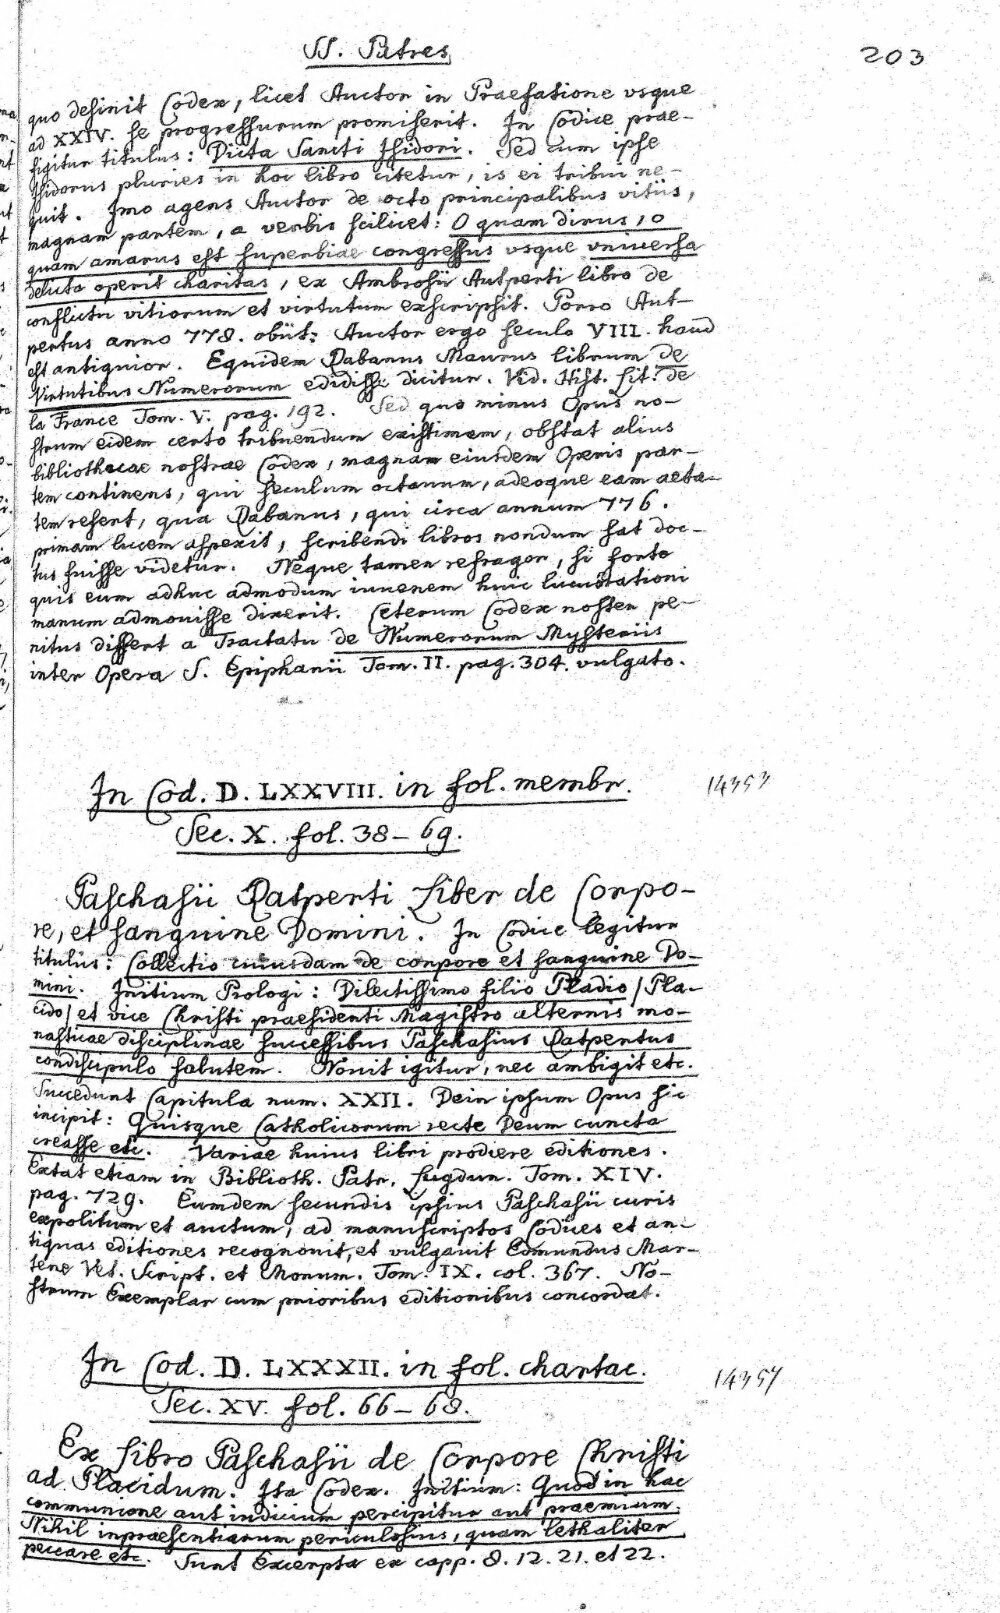 SS. Patres
203
quo desinit Codex, licet Auctor in Praefatione vsque
ad XXIV. se progressurum promiserit. In Codice prae-
figitur titulus: Dicta Sancti Isidori. Sed cum ipse
Isidorus pluries in hoc libro citetur, is ei tribui ne-
quit. Imo agens Auctor de octo principalibus vitiis,
magnam partem, a verbis scilicet: O quam dirus, o
quam amarus est superbiae congressus vsque vniuersa
delicta operit charitas, ex Ambrosii Autperti libro de
conflictu vitiorum et virtutum exscripsit. Porro Aut-
pertus anno 778. obiit: Auctor ergo seculo VIII. haud
est antiquior. Equidem Rabanus Maurus librum de
Virtutibus Numerorum edidisse dicitur. Vid. Hist. Lit. de
la France Tom. V. pag. 192. Sed quo minus Opus no-
strum eidem certo tribuendum existimem, obstat alius
bibliothecae nostrae Codex, magnam eiusdem Operis par-
tem continens, qui seculum octauum, adeoque eam aeta-
tem refert, qua Rabanus, qui circa annum 776.
primam lucem aspexit, scribendi libros nondum sat doc-
tus fuisse videtur. Neque tamen refragor, si forte
quis eum adhuc admodum iuuenem huic lucubrationi
manum admouisse dixerit. Ceterum Codex noster pe-
nitus differt a Tractatu de Numerorum Mysteriis
inter Opera S. Epiphanii Tom. II. pag. 304. vulgato.
In Cod. D. LXXVIII. in fol. membr.
14353
Sec. X. fol. 38-69.
Paschasii Ratperti Liber de Corpo-
re, et sanguine Domini. In Codice legitur
titulus: Collectio cuiusdam de corpore et sanguine Do-
mini. Initium Prologi: Dilectissimo filio Pladio /Pla-
cido/ et vice Christi praesidenti Magistro alternis mo-
nasticae disciplinae successibus Paschasius Ratpertus
condiscipulo salutem. Nouit igitur, nec ambigit etc.
Succedunt Capitula num. XXII. Dein ipsum Opus sic
incipit: Quisque Catholicorum recte Deum cuncta
creasse etc. Variae huius libri prodiere editiones.
Extat etiam in Biblioth. Patr. Lugdun. Tom. XIV.
pag. 729. Eumdem secundis ipsius Paschasii curis
expolitum et auctum, ad manuscriptos Codices et an-
tiquas editiones recognouit, et vulgauit Edmundus Mar-
tene Vet. Script. et Monum. Tom. IX. col. 367. No-
strum Exemplar cum prioribus editionibus concordat.
In Cod. D. LXXXII. in fol. chartac.
14357
Sec. XV. fol. 66-68.
Ex Libro Paschasii de Corpore Christi
ad Placidum. Ita Codex. Initium: Quod in hac
communione aut iudicium percipitur aut praemium.
Nihil inpraesentiarum periculosius, quam lethaliter
peccare etc. Sunt Excerpta ex capp. 8. 12. 21. et 22.